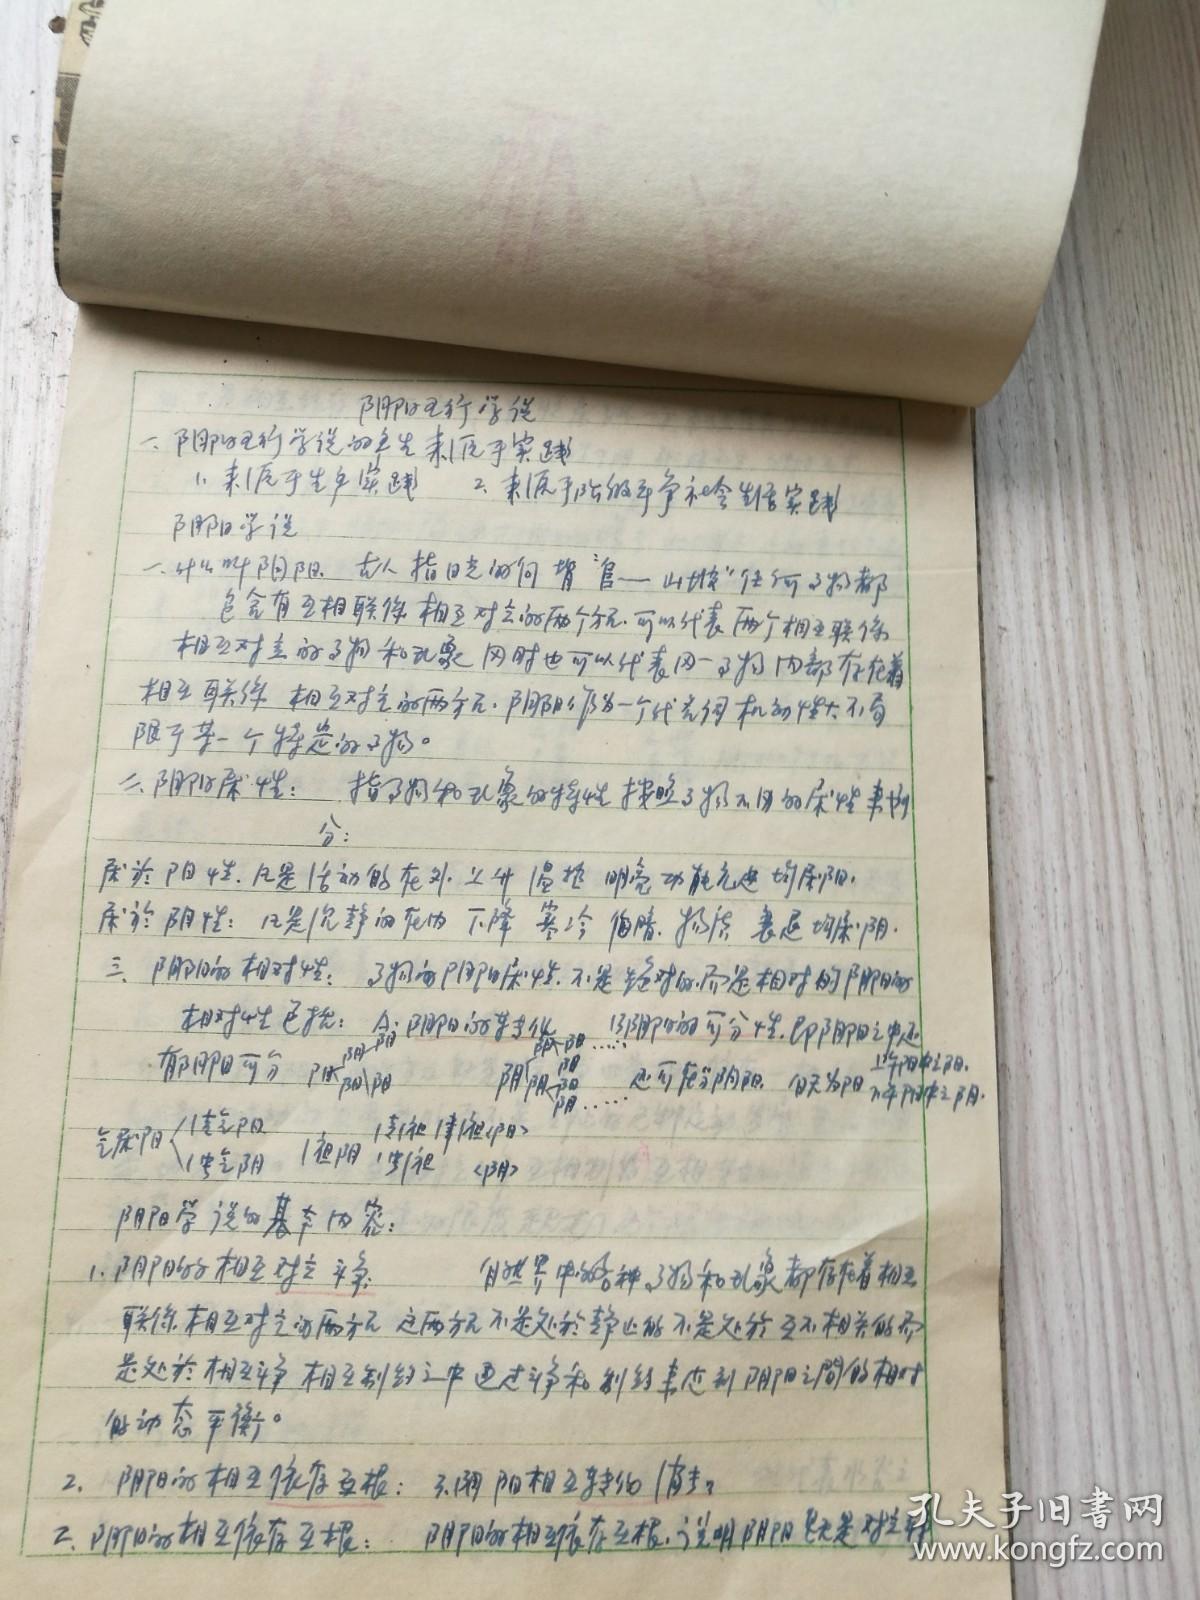 阴阳五行学说
一、阴阳五行学说的产生来源于实践
1. 来源于生产实践 2. 来源于阶级斗争社会生活实践
阴阳学说
一、什么叫阴阳. 古人指日光的向背 山坡"任何事物都
包含有互相联係相互对立的两个方面.可以代表两个相互联係
相互对立的事物和现象 同时也可以代表同一事物内部存在着
相互联係 相互对立的两方面. 阴阳作为一个代名词 机动性大不局
限于某一个特定的事物。
二、阴阳属性: 指事物和现象的特性按照事物不同的属性来划
分:
属於阳性. 凡是活动的在外.上升 温热 明亮 功能亢进 均属阳.
属於阴性: 凡是沉静的在内 下降 寒冷 晦暗.物质 衰退 均属阴.
三、阴阳的相对性: 事物的阴阳属性.不是绝对的.而是相对的阴阳的
相对性包括: A.阴阳的转化 B阴阳的可分性.即阴阳之中还
有阴阳可分 阴 阳 阴 阳 阳 阴 阴 阳 阴 阳 阴 …… 还可能分阴阳. 白天为阳 上午阳中之阳. 下午阳中之阴.
气属阳 清气阳 浊气阴 浊阴 清浊 津浊<阳> 浊浊 <阴>
阴阳学说的基本内容:
1. 阴阳的相互对立斗争: 自然界中的各种事物和现象都存在着相互
联係.相互对立的两方面 这两方面不是处於静止的不是处於互不相关的而
是处於相互斗争 相互制约之中 通过斗争和制约来达到阴阳之間的相对
的动态平衡。
2. 阴阳的相互依存互根: 3.阴阳相互转化 消长
二. 阴阳的相互依存互根: 阴阳的相互依存互根.说明阴阳既是对立
孔夫子旧书网
www.kongfz.com